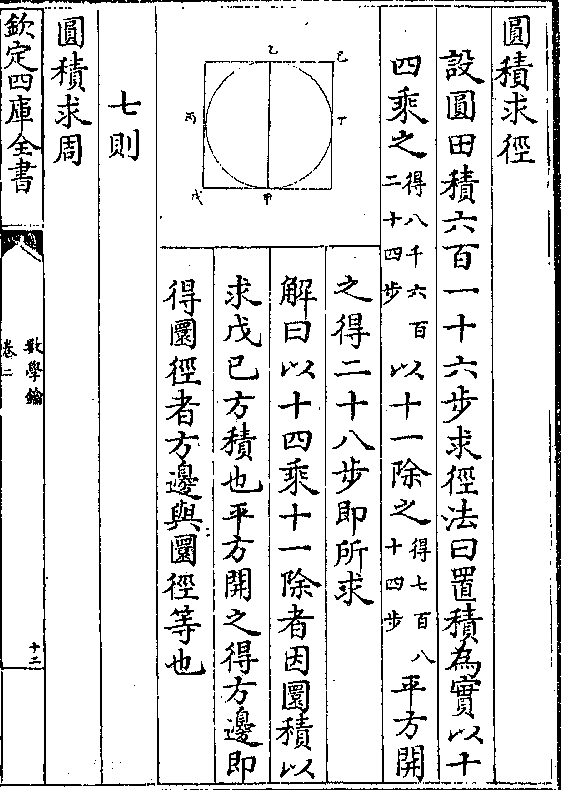 圓積求徑
設圓田積六百一十六步求徑法曰置積為實以十
四乘之得八千六百二十四步以十一除之得七百八十四步平方開
之得二十八步即所求
解曰以十四乘十一除者因圜積以
求戊已方積也平方開之得方邊即
得圜徑者方邊與圜徑等也
乙
已
丙
丁
戊
甲
七則
圓積求周
欽定四庫全書
數學鑰
卷二
十二